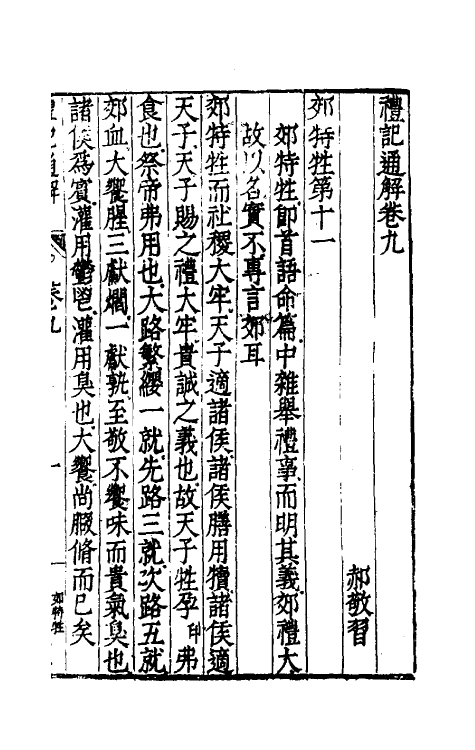 禮記通解卷九
郝敬習
郊特牲第十一
郊特牲即首語命篇中雜舉禮事而明其義郊禮大
故以名實不專言郊耳
郊特牲而社稷大牢天子適諸侯諸侯膳用犢諸侯適
天子天子賜之禮大牢貴誠之義也故天子牲孕印弗
食也祭帝弗用也大路繁纓一就先路三就次路五就
郊血大饗腥三獻爓一獻孰至敬不饗味而貴氣臭也
諸侯為賓灌用鬱鬯灌用臭也大饗尚腶脩而已矣
禮記通解
卷九
一
郊特牲